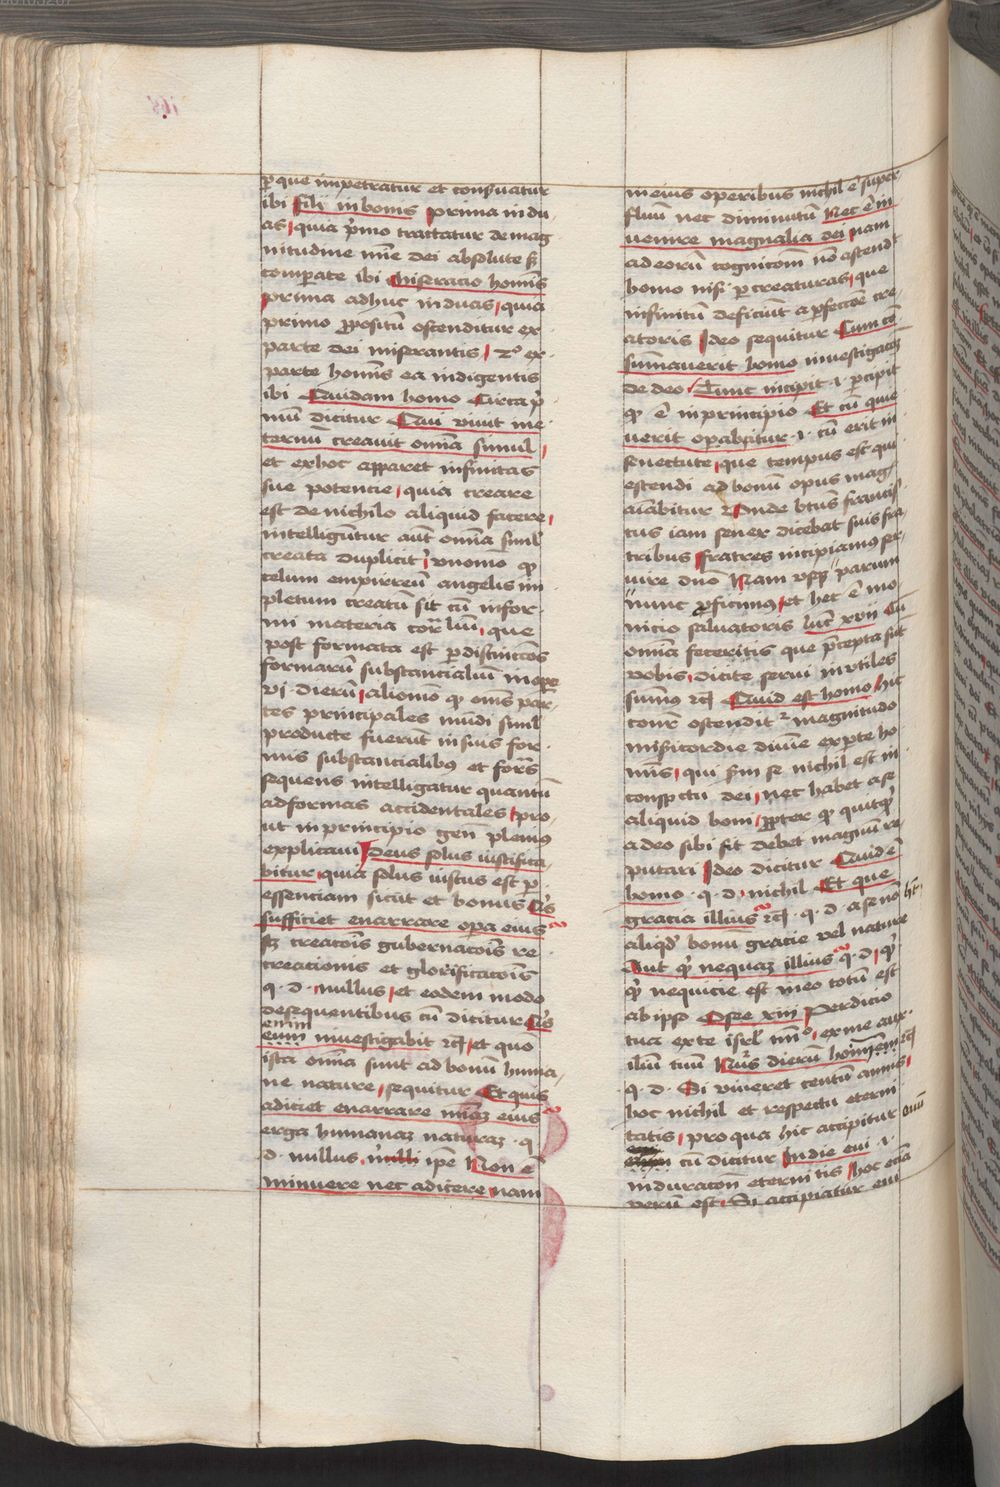 p que impetratur et conseruatur
ibi fili in bonis prima in du
as quia pmo tractatur de mag
nitudine mie dei absolute
comparate ibi miseracio hominis
prima adhuc in duas quia
primo ppositu ostenditur ex
parte dei miserantis 2º ex
parte hominis ea indigentis
ibi Quidam homo Circa p
mu dicitur Qui viuit in e
ternu creauit omia simul
et ex hoc apparet infinitas
sue potencie quia creare
est de nichilo aliquid facere
intelliguntur aut omia simul
creata duplicit vno modo
celum empirreu angelis im
pletum creatu sit cu infor
mi materia que
post formata est p distinccões
formaru substancialiu in opere
vi dieru alio modo omes par
tes principales mudi simul
producte fuerut in suis for
mis substancialibus et
sequens intelligatur quantu
ad formas accidentales pro
ut in principio gen plenius
explicaui Deus solus iustifica
bitur quia solus iustus est p
essentiam sicut et bonus Quis
sufficiet enarrare opera eius
creatois gubernatois re
creationis et glorificatois
q d nullus et eodem modo
de sequentibus cu dicitur Quis
enim
eum inuestigabit et quo
ista omia sunt ad bonu huma
ne nature sequitur Et quis
adiciet enarrare eius
erga humana natura q
d nullus ipe Non e
minuere nec adicere nam
in eius operibus nichil e super
fluu nec diminutu Nec e in
uenire magnalia dei nam
ad eoru cognicom no ascendit
homo nisi p creaturas que
infinitu deficiut a perfectoe cre
atoris Ideo sequitur Cum con
sumauerit homo inuestigacõ
de deo Tunc incipit i percipit
e in principio Et cu quie
uerit i cu erit in
senectute que tempus est qui
escendi ad bonu opus mag
Vnde btus francis
cus iam senex dicebat suis fra
tribus fratres incipiamus ser
uire dno Nam vsque parum
nunc pfecimus et hec e mo
nicio saluatoris luc xvii Cu
omia feceritis que pcepta sut
vobis dicite serui inutiles
sumus Quid est homo hic
ostendit magnitudo
misericordie diuine ex parte ho
minis qui se nichil est in
conspectu dei nec habet a se
aliquid boni ppter quicquid
a deo sibi fit debet magnu re
putari Ideo dicitur Quid e
homo q d nichil Et que
gracia illius q d a se no het
aliquod bonu gracie vel nature
Aut que nequa illius q d
nequicie est in eo totu est
ab ipso Osee xiii Perdicio
tua ex te isrl ex me aux
iliu tuu Nus dieru hominum
q d Si viueret centu annis
hoc nichil et respectu eterni
tatis pro qua hic accipitur euu
cu dicitur In die eui i
in duracom eternitatis hoc ecia
veru est Si accipiatur eui